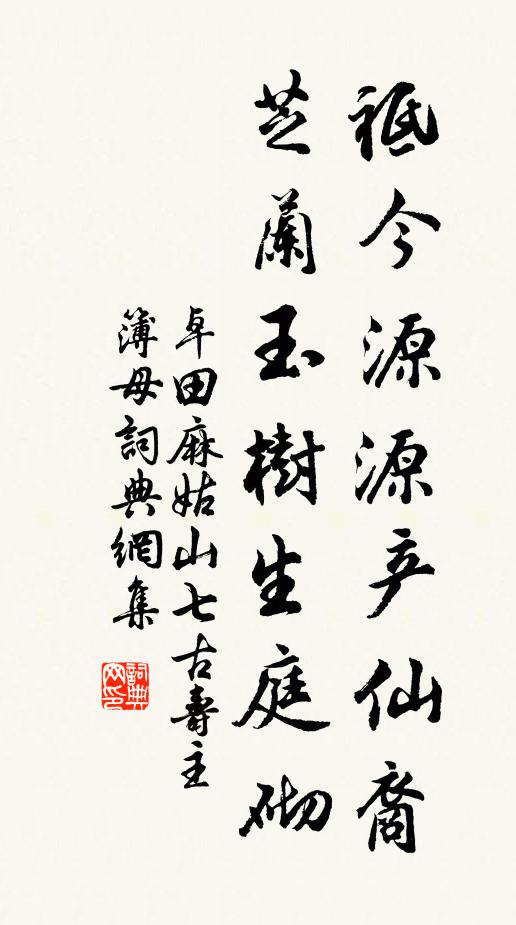 祗今源源产仙裔
芝蘭玉樹生庭砌
卓田麻姑山七古壽主
簿母詞典網集
詞典网印